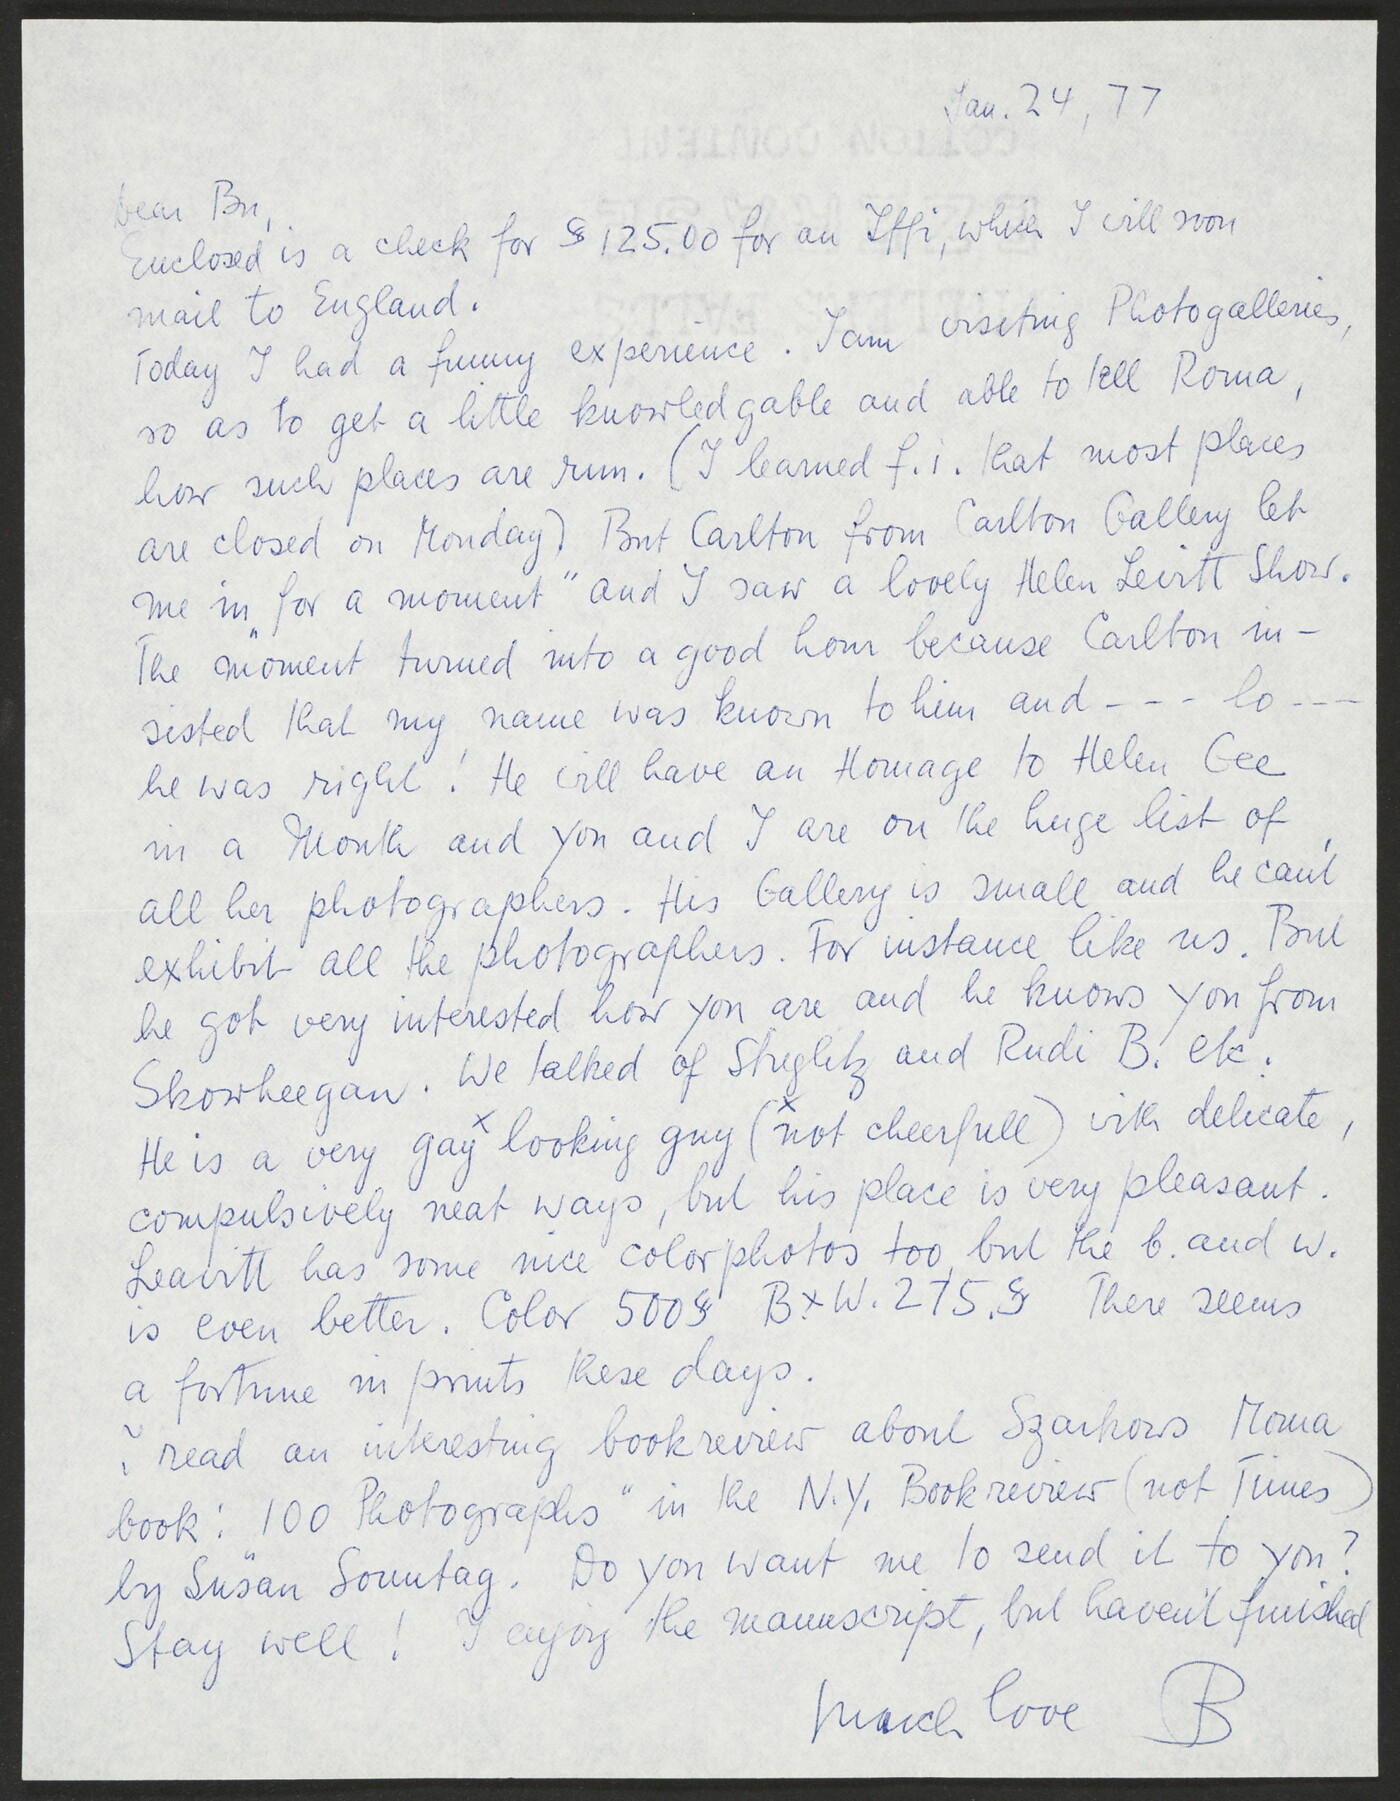 Jan. 24, 77
Dear Bn,
Enclosed is a check for $125.00 for an Iffi, which I will soon
mail to England.
Today I had a funny experience. I am visiting Photogalleries,
so as to get a little knowledgable and able to tell Roma,
how such places are run. (I learned f.i. that most places
are closed on Monday) But Carlton from Carlton Gallery let
me in "for a moment" and I saw a lovely Helen Levitt Show.
The "moment turned into a good hour because Carlton in-
sisted that my name was known to him and - - - lo - - -
he was right! He will have an Homage to Helen Gee
in a Month and you and I are on the huge list of
all her photographers. His Gallery is small and he can't
exhibit all the photographers. For instance like us. But
he got very interested how you are and he knows you from
Skowheegan. We talked of Stieglitz and Rudi B. etc.
He is a very gay x looking guy (x not cheerfull) with delicate,
compulsively neat ways, but his place is very pleasant.
Leavitt has some nice colorphotos too, but the b. and w.
is even better. Color 500$ B x W. 275.$ There seems
a fortune in prints these days.
I read an interesting bookreview about Szarkows Moma
book: 100 Photographs" in the N.Y. Bookreview (not Times)
by Susan Sonntag. Do you want me to send it to you?
Stay well! I enjoy the manuscript, but haven't finished
Much love B